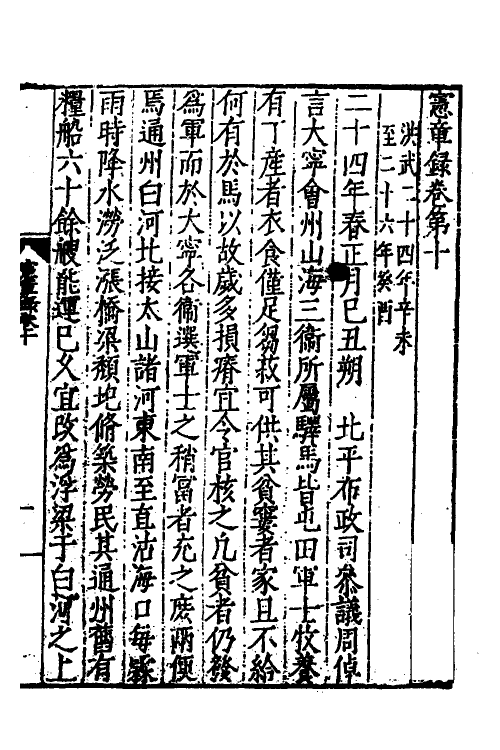 憲章録卷第十
洪武二十四年辛未
至二十六年癸酉
二十四年春正月己丑朔　北平布政司叅議周倬
言大寧會州山海三衞所屬驛馬皆屯田軍士牧養
有丁產者衣食僅足芻菽可供其貧窶者家且不給
何有於馬以故歲多損瘠宜令官核之凡貧者仍發
爲軍而於大寧各衞選軍士之稍冨者充之庶兩便
馬通州白河北接太山諸河東南至直沽海口毎霖
雨時降水澇泛漲橋梁頽圮脩築勞民其通州舊有
糧船六十餘艘能運已久宜攺爲浮梁于白河之上